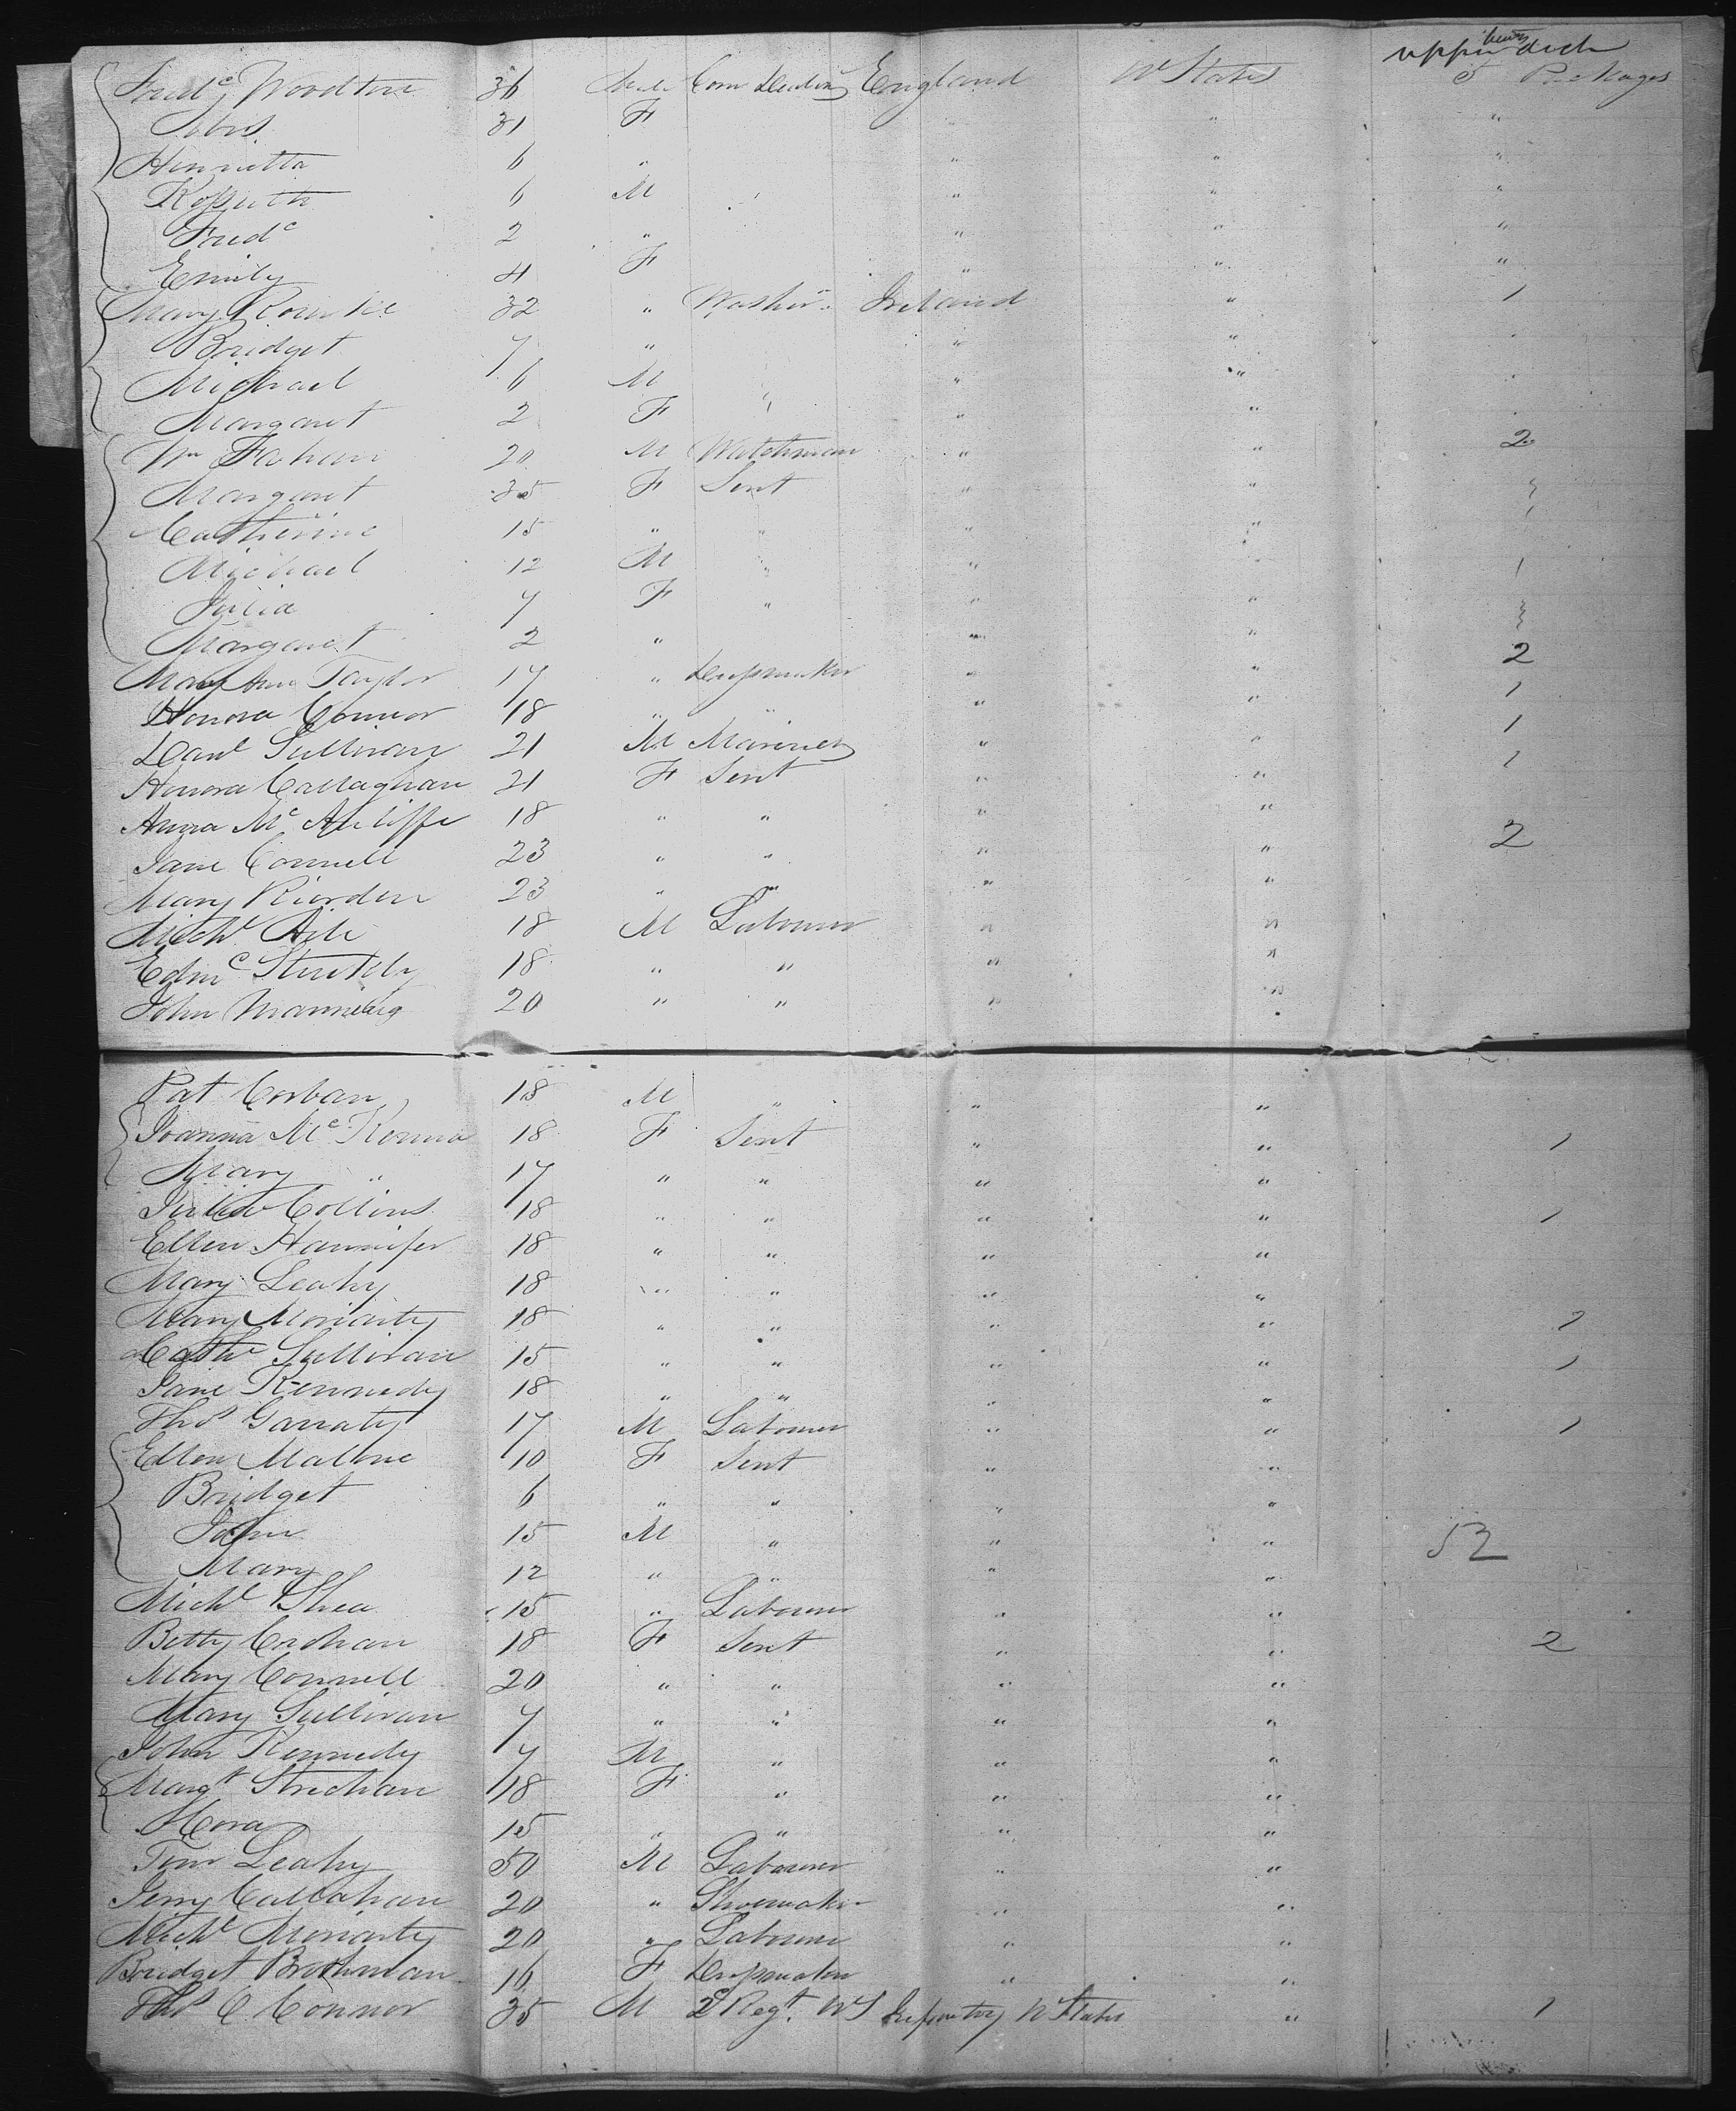 upper between deck
Fredc Woodton 36 Male Corn Dealing England U States 5 Packages
31 F " "
Henrietta 6 " " " "
Kossuth 6 M " " " "
Fredc 2 " " " "
Emily 4 F " " "
Mary Rourke 32 " Washer Ireland " 1
Bridget 7 " " "
Michael 6 M " "
Margaret 2 F " " "
Wm Fahan 20 M Watchman " " 2
Margaret 35 F Sert " "
Catherine 15 " " " " 1
Michael 12 M " " 1
Julia 7 F " " "
Margaret 2 " " "
Mary Ann Taylor 17 " Dressmaker " " 2
Honora Connor 18 " " " " 1
Danl Sullivan 21 M Mariner " " 1
Honora Callaghan 21 F Sert " " 1
Anna Mc Auliffe 18 " " " "
Jane Connell 23 " " " " 2
Mary Riorden 23 " " " "
Michl 18 M Labourer " "
Edmc Stuckly 18 " " " "
John Manning 20 " " " "
Pat Corban 18 M " " "
Joanna Mc Kenna 18 F Sert " " 1
Mary " 17 " " " "
Julia Collins 18 " " " " 1
Ellen Hannifer 18 " " " "
Mary Leahy 18 " " " "
Mary Moriarty 18 " " " "
Cathe Sullivan 15 " " " " 1
Jane Kennedy 18 " " " "
Thos Garraty 17 M Labourer " " 1
Ellen Malone 10 F Sert " "
Bridget 6 " " " "
John 15 M " " " 52
Mary 12 " " " "
Michl Shea 15 " Labourer " "
Betty Crohan 18 F Sert " " 2
Mary Connell 20 " " " "
Mary Sullivan 7 " " " "
John Kennedy 7 M " " "
Margt Strechan 18 F " " "
Nora 15 " " " "
Tim Leahy 50 M Labourer " "
Jerry Callahan 20 " Shoemaker " "
Michl Moriarty 20 " Labourer " "
Bridget Brothman 16 F Dressmaker " "
Thos O Connor 35 M 2d Regt. US Infantry U States " 1